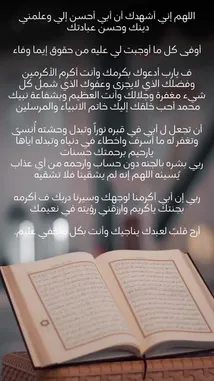 اللهم إني أشهدك أن أبي أحسن إلي وعلمني
دينك وحسن عبادتك
أوفى كل ما أوجبت لي عليه من حقوق إيما وفاء
ف يارب أدعوك بكرمك وأنت أكرم الأكرمين
وفضلك الذي لايجزى وعفوك الذي شمل كل
شيء مغفرة وجلالك وأنت العظيم وبشفاعة نبيك
محمد أحب خلقك إليك خاتم الأنبياء والمرسلين
أن تجعل ل أبي في قبره نوراً وتبدل وحشته أُنسيً
وتغفر له ما أسرف وأخطاء في دنياه وتبدله أياها
يارحيم برحمتك حسنات
ربي بشره بالجنه دون حساب وارحمه من أي عذاب
يُنسينه اللهم إنه لم يشقينا فلا تشقيه
ربي إن أبي أكرمنا لوجهك وسيرنا دربك ف أكرمه
بجنتك ياكريم وارزقني رؤيته في نعيمك
أرح قلبً لعبدك يناجيك وأنت بكل ماخفي عليم.